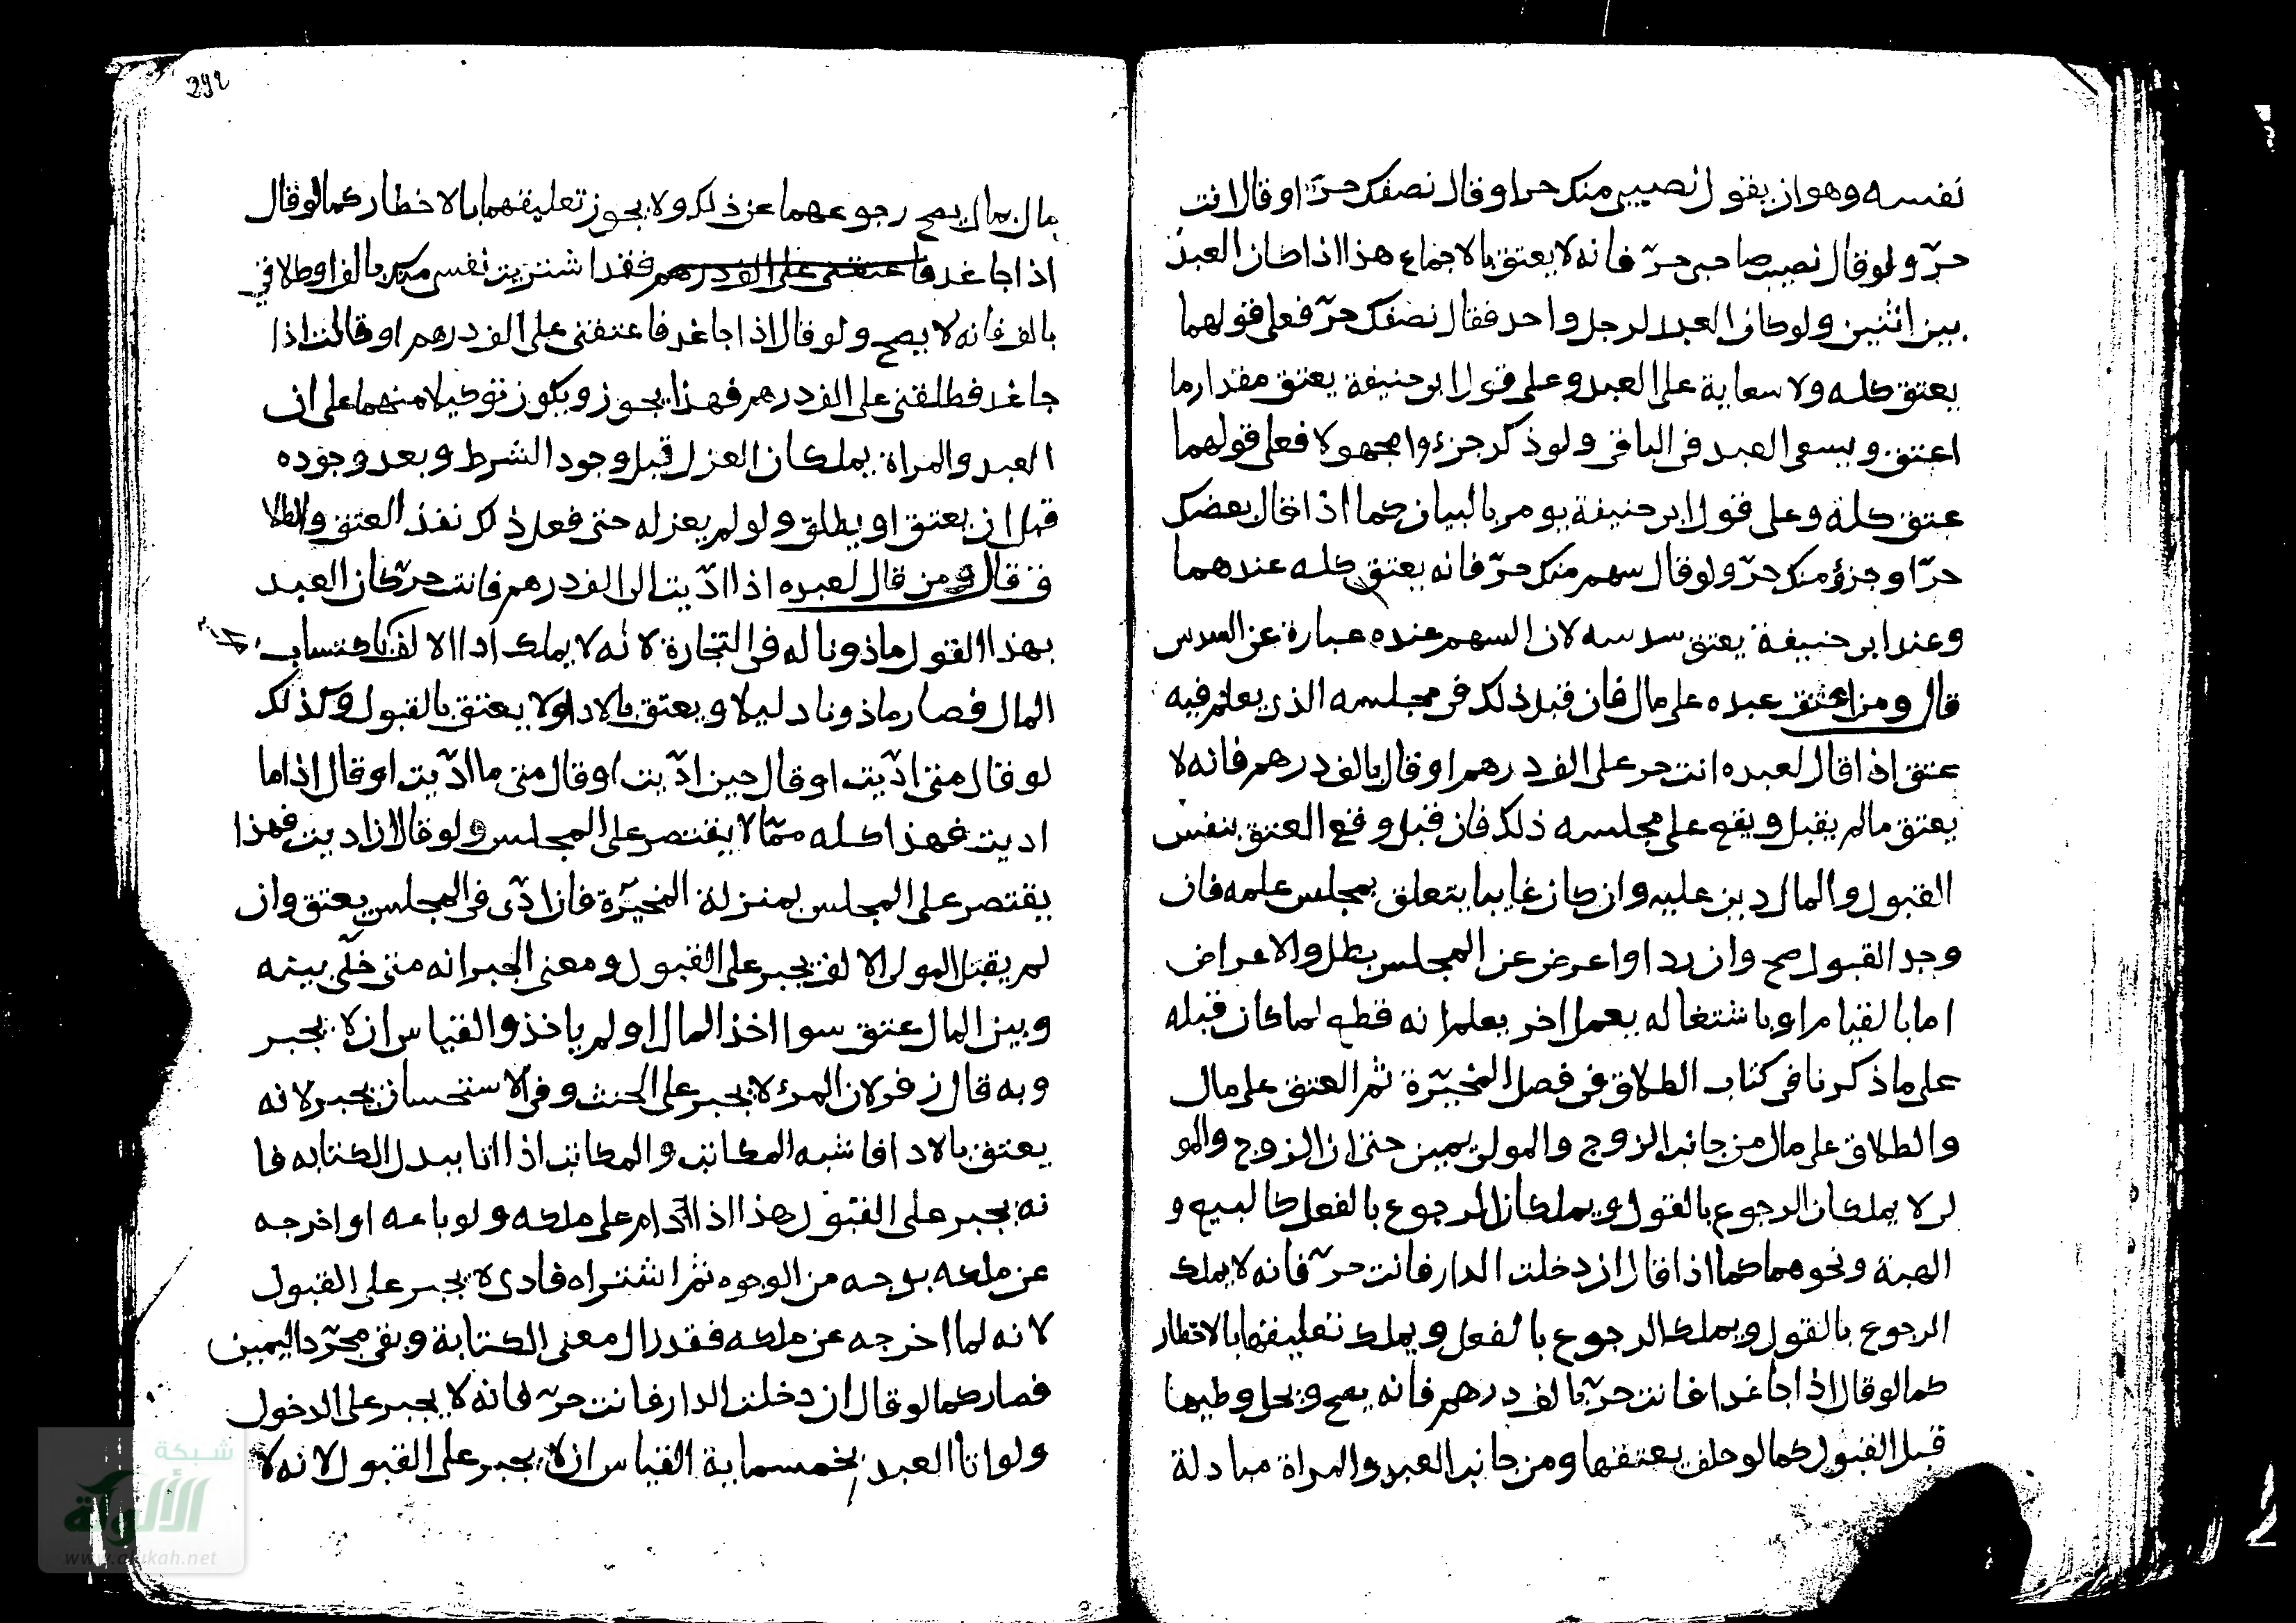 نفسه وهو ان يقول نصيبي منك حر او قال نصفك حرّ او قال انت
حرّ ولو قال نصيب صاحبي حرّ فانه لا يعتق بالاجماع هذا اذا كان العبد
بين اثنين ولو كان العبد لرجل واحد فقال نصفك حرّ فعلى قولهما
يعتق كله ولا سعاية على العبد وعلى قول ابي حنيفة يعتق مقدار ما
اعتق ويسعى العبد في الباقي ولو ذكر جزءوا مجهولا فعلى قولهما
عتق كله وعلى قول ابي حنيفة يومر بالبيان كما اذا قال بعضك
حرّ او جزؤ منك حرّ ولو قال سهم منك حرّ فانه يعتق كله عندهما
وعند ابي حنيفة يعتق سدسه لان السهم عنده عبارة عن السدس
قال ومن اعتق عبده على مال فان قبل ذلك في مجلسه الذي يعلم فيه
عتق اذا قال لعبده انت حر على الف درهم او قال بالف درهم فانه لا
يعتق مالم يقبل ويقع على مجلسه ذلك فان قبل وقع العتق بنفس
القبول والمال دين عليه وان كان غايبا يتعلق بمجلس علمه فان
وجد القبول صح وان رد او اعرض عن المجلس بطل والاعراض
اما بالقيام او باشتغاله بعمل اخر يعلم انه قطع لما كان قبله
على ما ذكرنا في كتاب الطلاق في فصل المخيّرة ثم العتق على مال
والطلاق على مال من جانب الزوج والمولى يمين حتى ان الزوج والمو
لى لا يملكان الرجوع بالقول ويملكان الرجوع بالفعل كالبيع و
الهبة ونحوهما كما اذا قال ان دخلت الدار فانت حرّ فانه لا يملك
الرجوع بالقول ويملك الرجوع بالفعل ويملك تعليقها بالاخطار
كما لو قال اذا جا غدا فانت حرّ بالف درهم فانه يصح ويحل وطيها
قبل القبول كما لو حلف يعتقها ومن جانب العبد والمراة مبادلة
292
مال بمال يصح رجوعهما عن ذلك ولا يجوز تعليقهما بالاخطار كما لو قال
اذا جا غد فاعتقني على الف درهم فقد اشتريت نفسي منك بالف او طلاقي
بالف فانه لا يصح ولو قال اذا جا غد فاعتقني على الف درهم او قالت اذا
جا غد فطلقني على الف درهم فهذا يجوز ويكون توكيلا منهما على ان
العبد والمراة يملكان العزل قبل وجود الشرط وبعد وجوده
قبل ان يعتق او يطلق ولو لم يعزله حتى فعل ذلك نفذ العتق والطلا
ق قال ومن قال لعبده اذا ادّيت الى الف درهم فانت حرّ كان العبد
بهذا القول ماذونا له في التجارة لانه لا يملك ادا الالف باكتساب
المال فصار ماذونا دليلا ويعتق بالادا ولا يعتق بالقبول وكذلك
لو قال متى ادّيت او قال حين ادّيت او قال متى ما ادّيت او قال اذا ما
اديت فهذا كله ممّا لا يقتصر على المجلس ولو قال ان اديت فهذا
يقتصر على المجلس بمنزلة المخيّرة فان ادّى في المجلس يعتق وان
لم يقبل المولى الالف يجبر على القبول ومعنى الجبر انه متى خلّى بينه
وبين المال عتق سوا اخذ المال او لم ياخذ والقياس ان لا يجبر
وبه قال زفر لان المرء لا يجبر على الحنث وفي الاستحسان يجبر لانه
يعتق بالادا فاشبه المكاتب والمكاتب اذا اتا ببدل الكتابه فا
نه يجبر على القبول هذا اذا ادام على ملكه ولو باعه او اخرجه
عن ملكه بوجه من الوجوه ثم اشتراه فادى لا يجبر على القبول
لانه لما اخرجه عن ملكه فقد زال معنى الكتابة وبقي مجرّد اليمين
فصار كما لو قال ان دخلت الدار فانت حرّ فانه لا يجبر على الدخول
ولو اتا العبد بخمسماية القياس ان لا يجبر على القبول لانه لا
شبكة
الألوكة
www.alukah.net